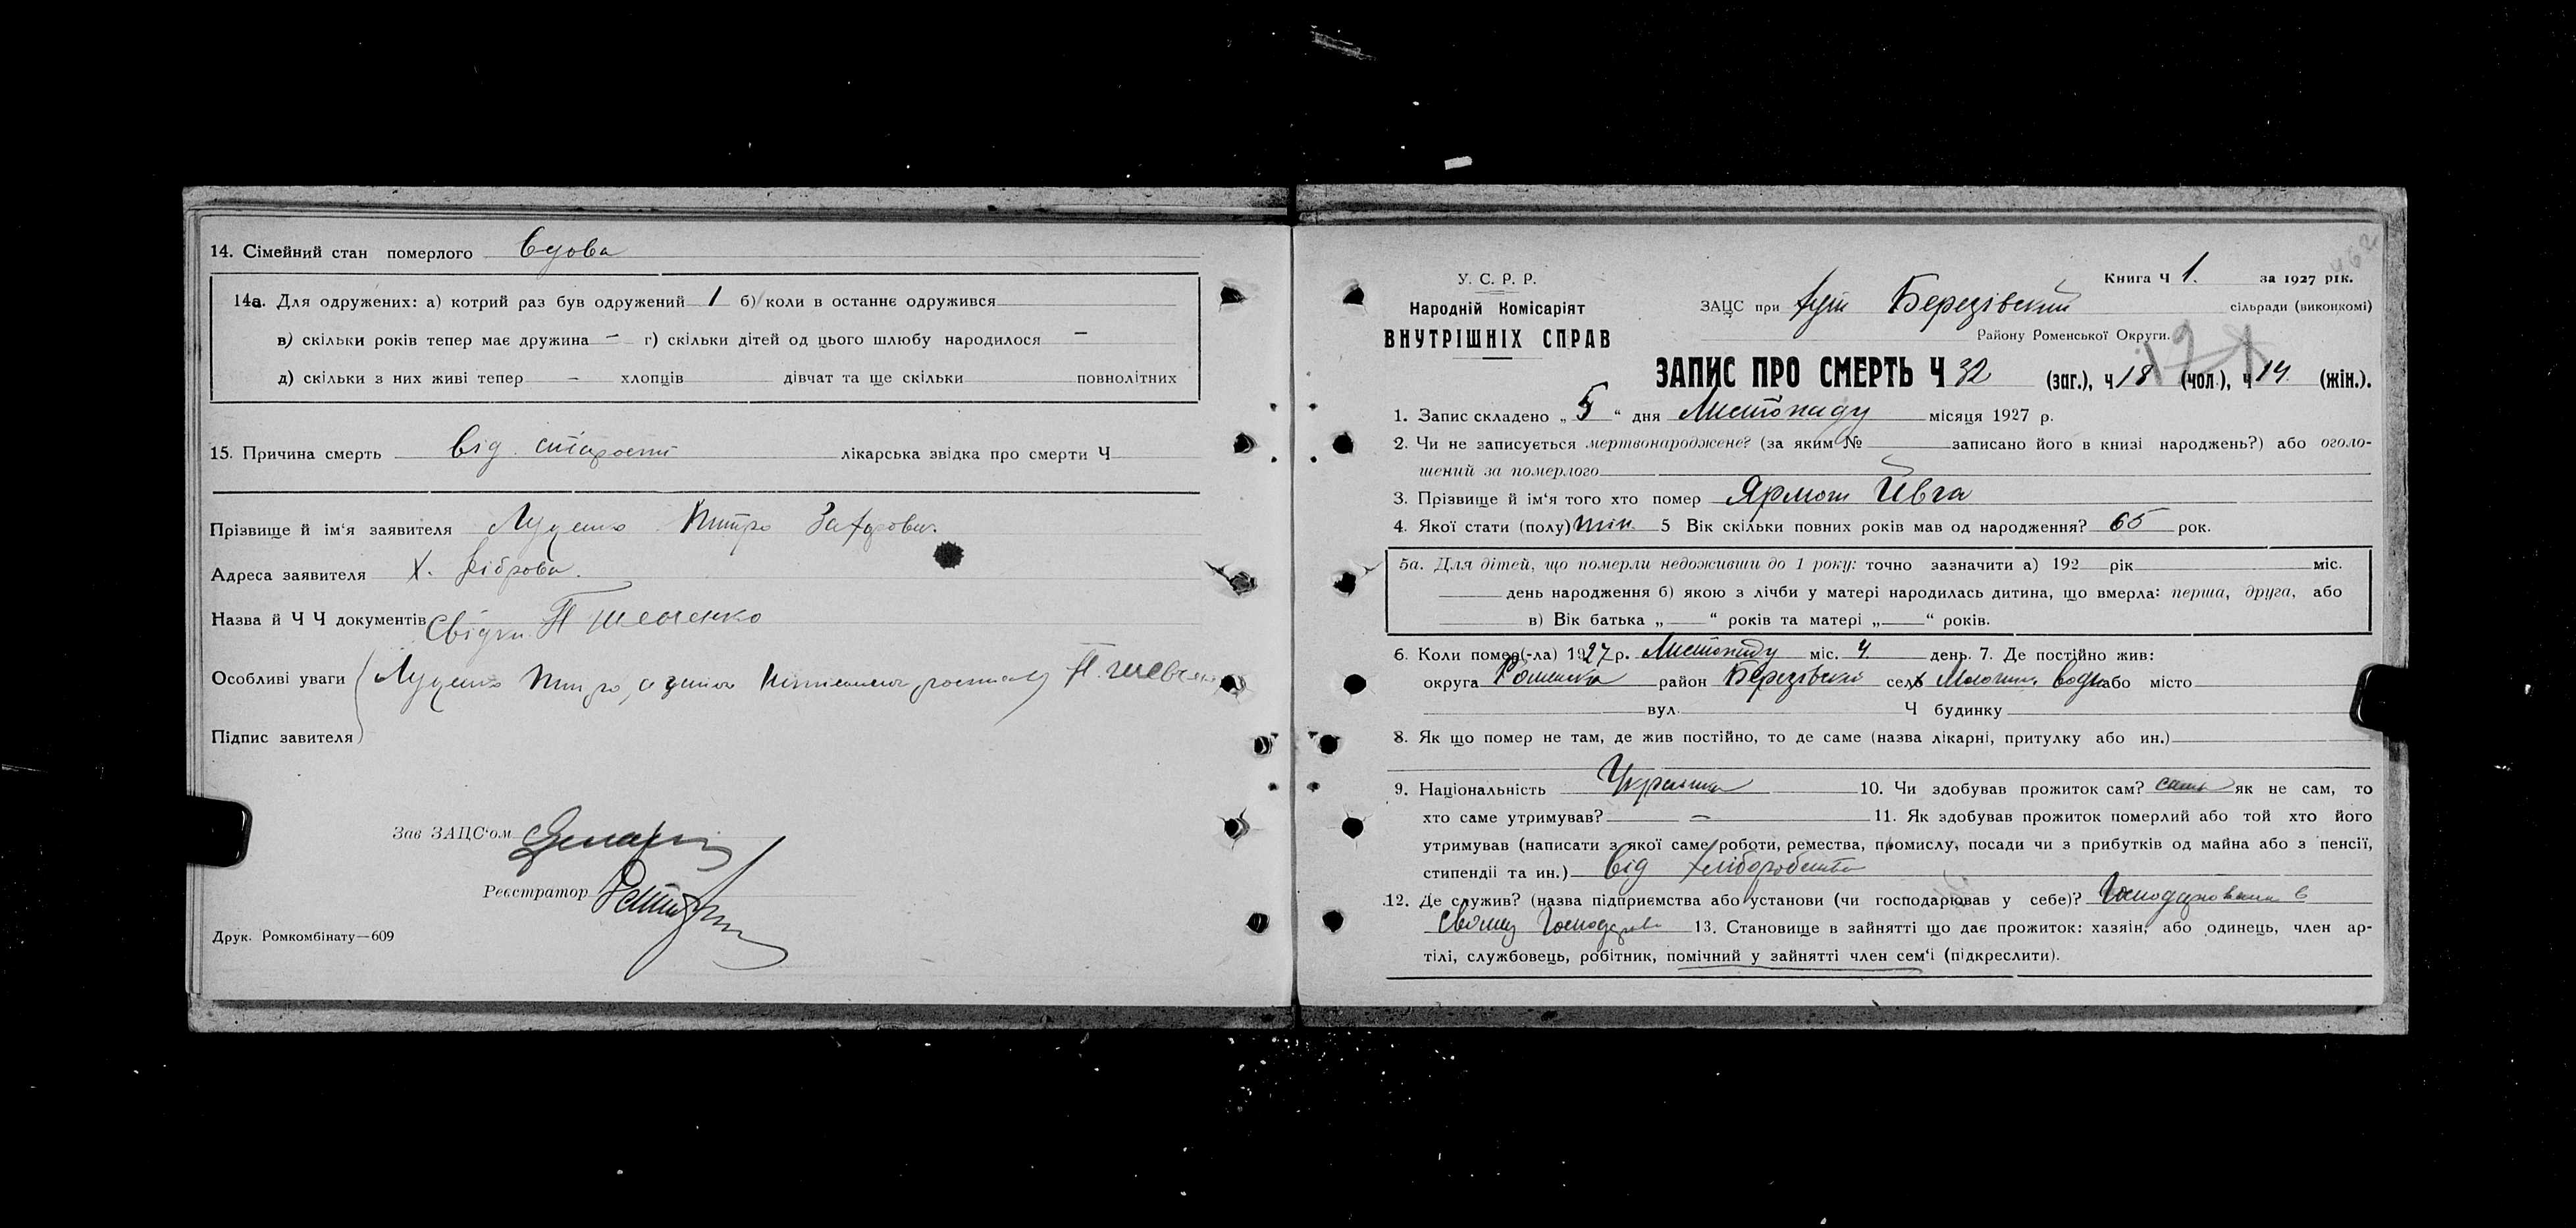 14. Сімейний стан померлого Вдова
14а. Для одружених: а) котрий раз був одружений 1 б) коли в останнє одружився
в) скільки років тепер має дружина — г) скільки дітей од цього шлюбу народилося —
д) скільки з них живі тепер — хлопців дівчат та ще скільки повнолітних
15. Причина смерть Від старости лікарська звідка про смерти Ч
Прізвище й ім'я заявителя Луценко
Адреса заявителя Х. Діброва.
Назва й Ч Ч документів Свідки П Шевченко
Особливі уваги Луценко П. Шевченко
Підпис завителя
Зав ЗАЦС'ом
Реєстратор
Друк. Ромкомбінату—609
462
У. С. Р. Р.
Народній Комісаріят
ВНУТРІШНІХ СПРАВ
Книга Ч 1. за 1927 рік.
ЗАЦС при Березівский сільради (виконкомі)
Району Роменської Округи.
ЗАПИС ПРО СМЕРТЬ Ч 32 (заг.), ч 18 (чол.), ч 14 (жін.).
1. Запис складено „ 5 “ дня Листопаду місяця 1927 р.
2. Чи не записується мертвонароджене? (за яким № записано його в книзі народжень?) або оголо-
шений за померлого
3. Прізвище й ім'я того хто помер Ярмош Ивга
4. Якої стати (полу) жін. 5 Вік скільки повних років мав од народження? 65 рок.
5а. Для дітей, що померли недоживши до 1 року: точно зазначити а) 192 рік міс.
день народження б) якою з лічби у матері народилась дитина, що вмерла: перша, друга, або
в) Вік батька „ “ років та матері „ “ років.
6. Коли помер(-ла) 1927 р. Листопаду міс. 4 день. 7. Де постійно жив:
округа Роменска район Березівский село або місто
вул. Ч будинку
8. Як що помер не там, де жив постійно, то де саме (назва лікарні, притулку або ин.)
9. Національність Українка 10. Чи здобував прожиток сам? сама як не сам, то
хто саме утримував? — 11. Як здобував прожиток померлий або той хто його
утримував (написати з якої саме роботи, ремества, промислу, посади чи з прибутків од майна або з пенсії,
стипендії та ин.) Від хліборобства
12. Де служив? (назва підприємства або установи (чи господарював у себе)? Господарювала в
своєму Господарстві 13. Становище в зайнятті що дає прожиток: хазяін, або одинець, член ар-
тілі, службовець, робітник, помічний у зайнятті член сем'ї (підкреслити).